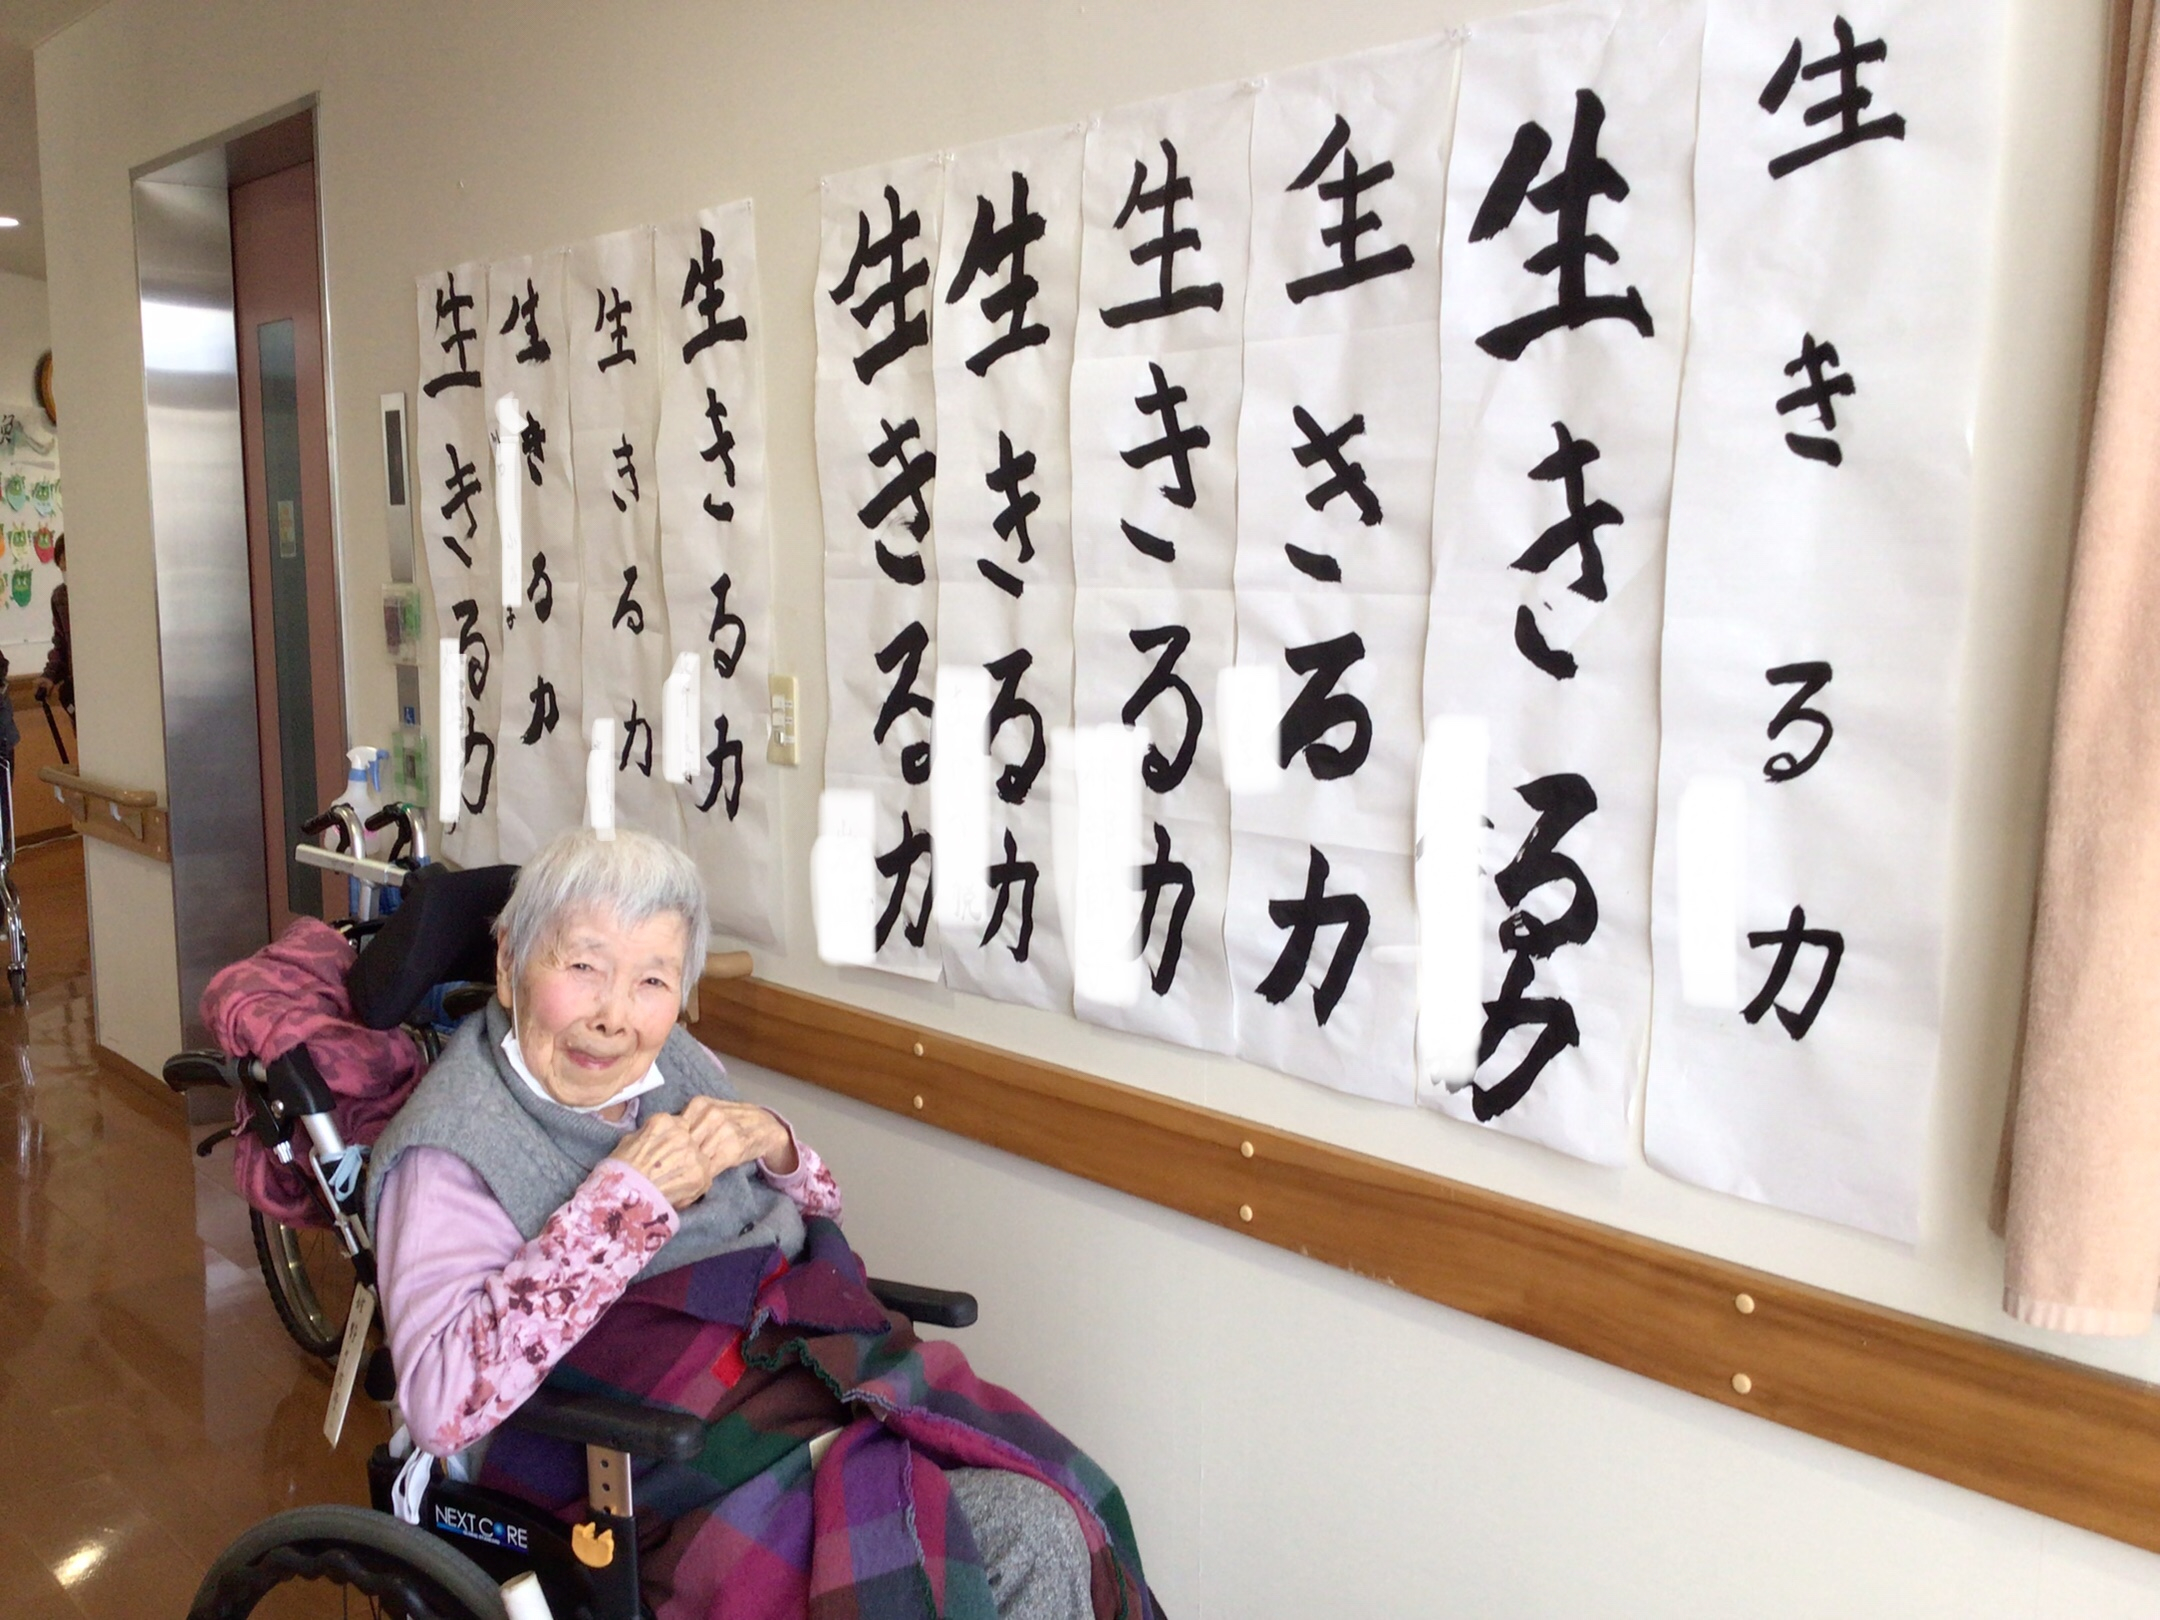 生きる力
生きる力
生きる力
生きる力
生きる力
生きる力
生きる力
生きる力
生きる力
生きる力
NEXT CORE